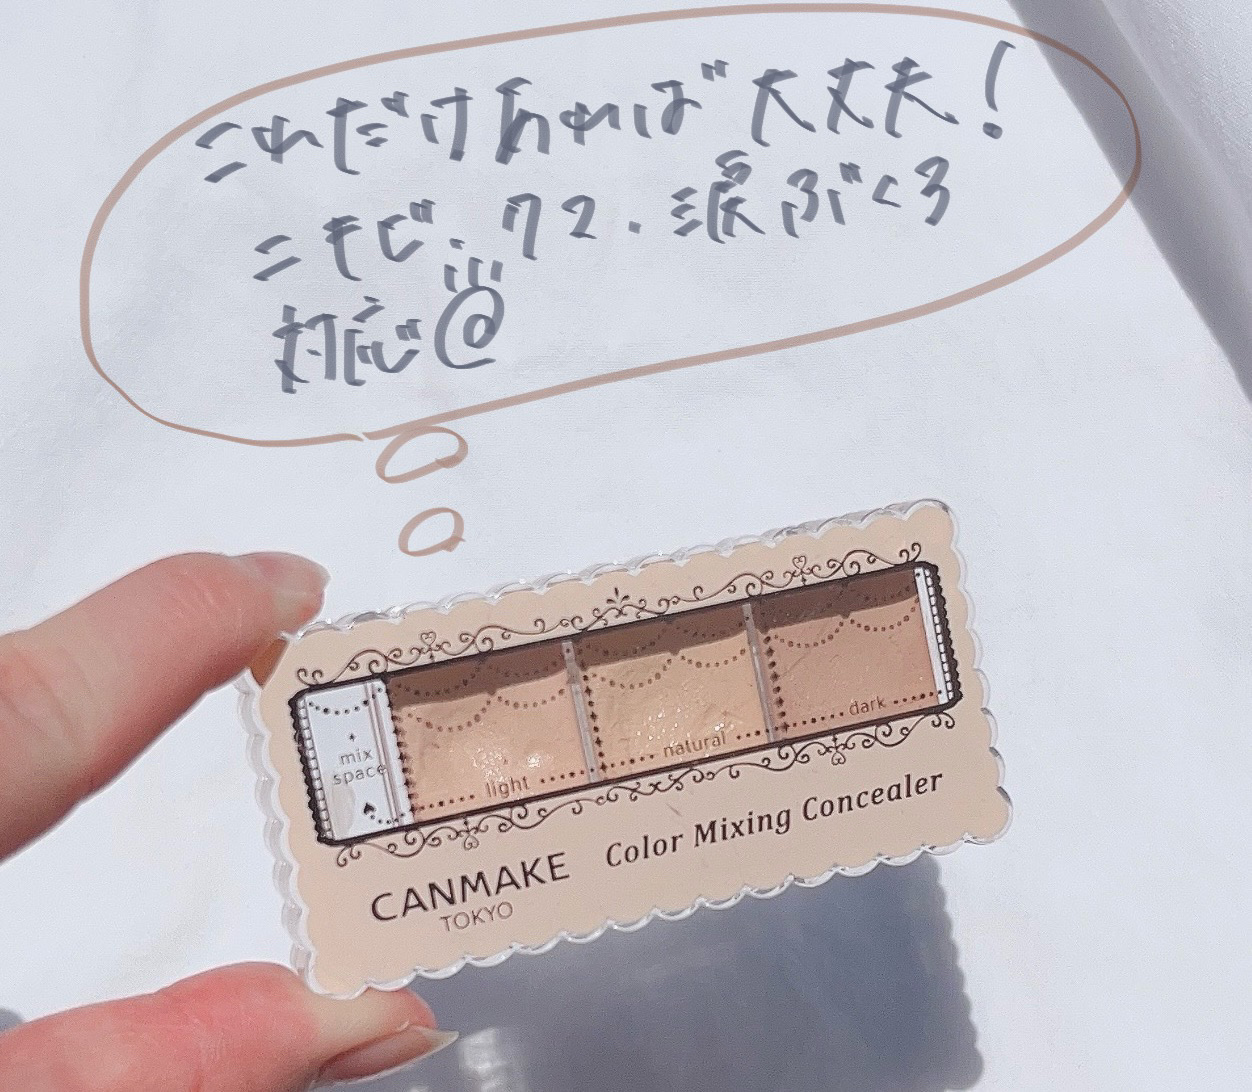 これだけあれば大丈夫!
ニキビ.クマ.涙ぶくろ
対応@
mix
space
light
natural
dark
Color Mixing Concealer
CANMAKE
TOKYO